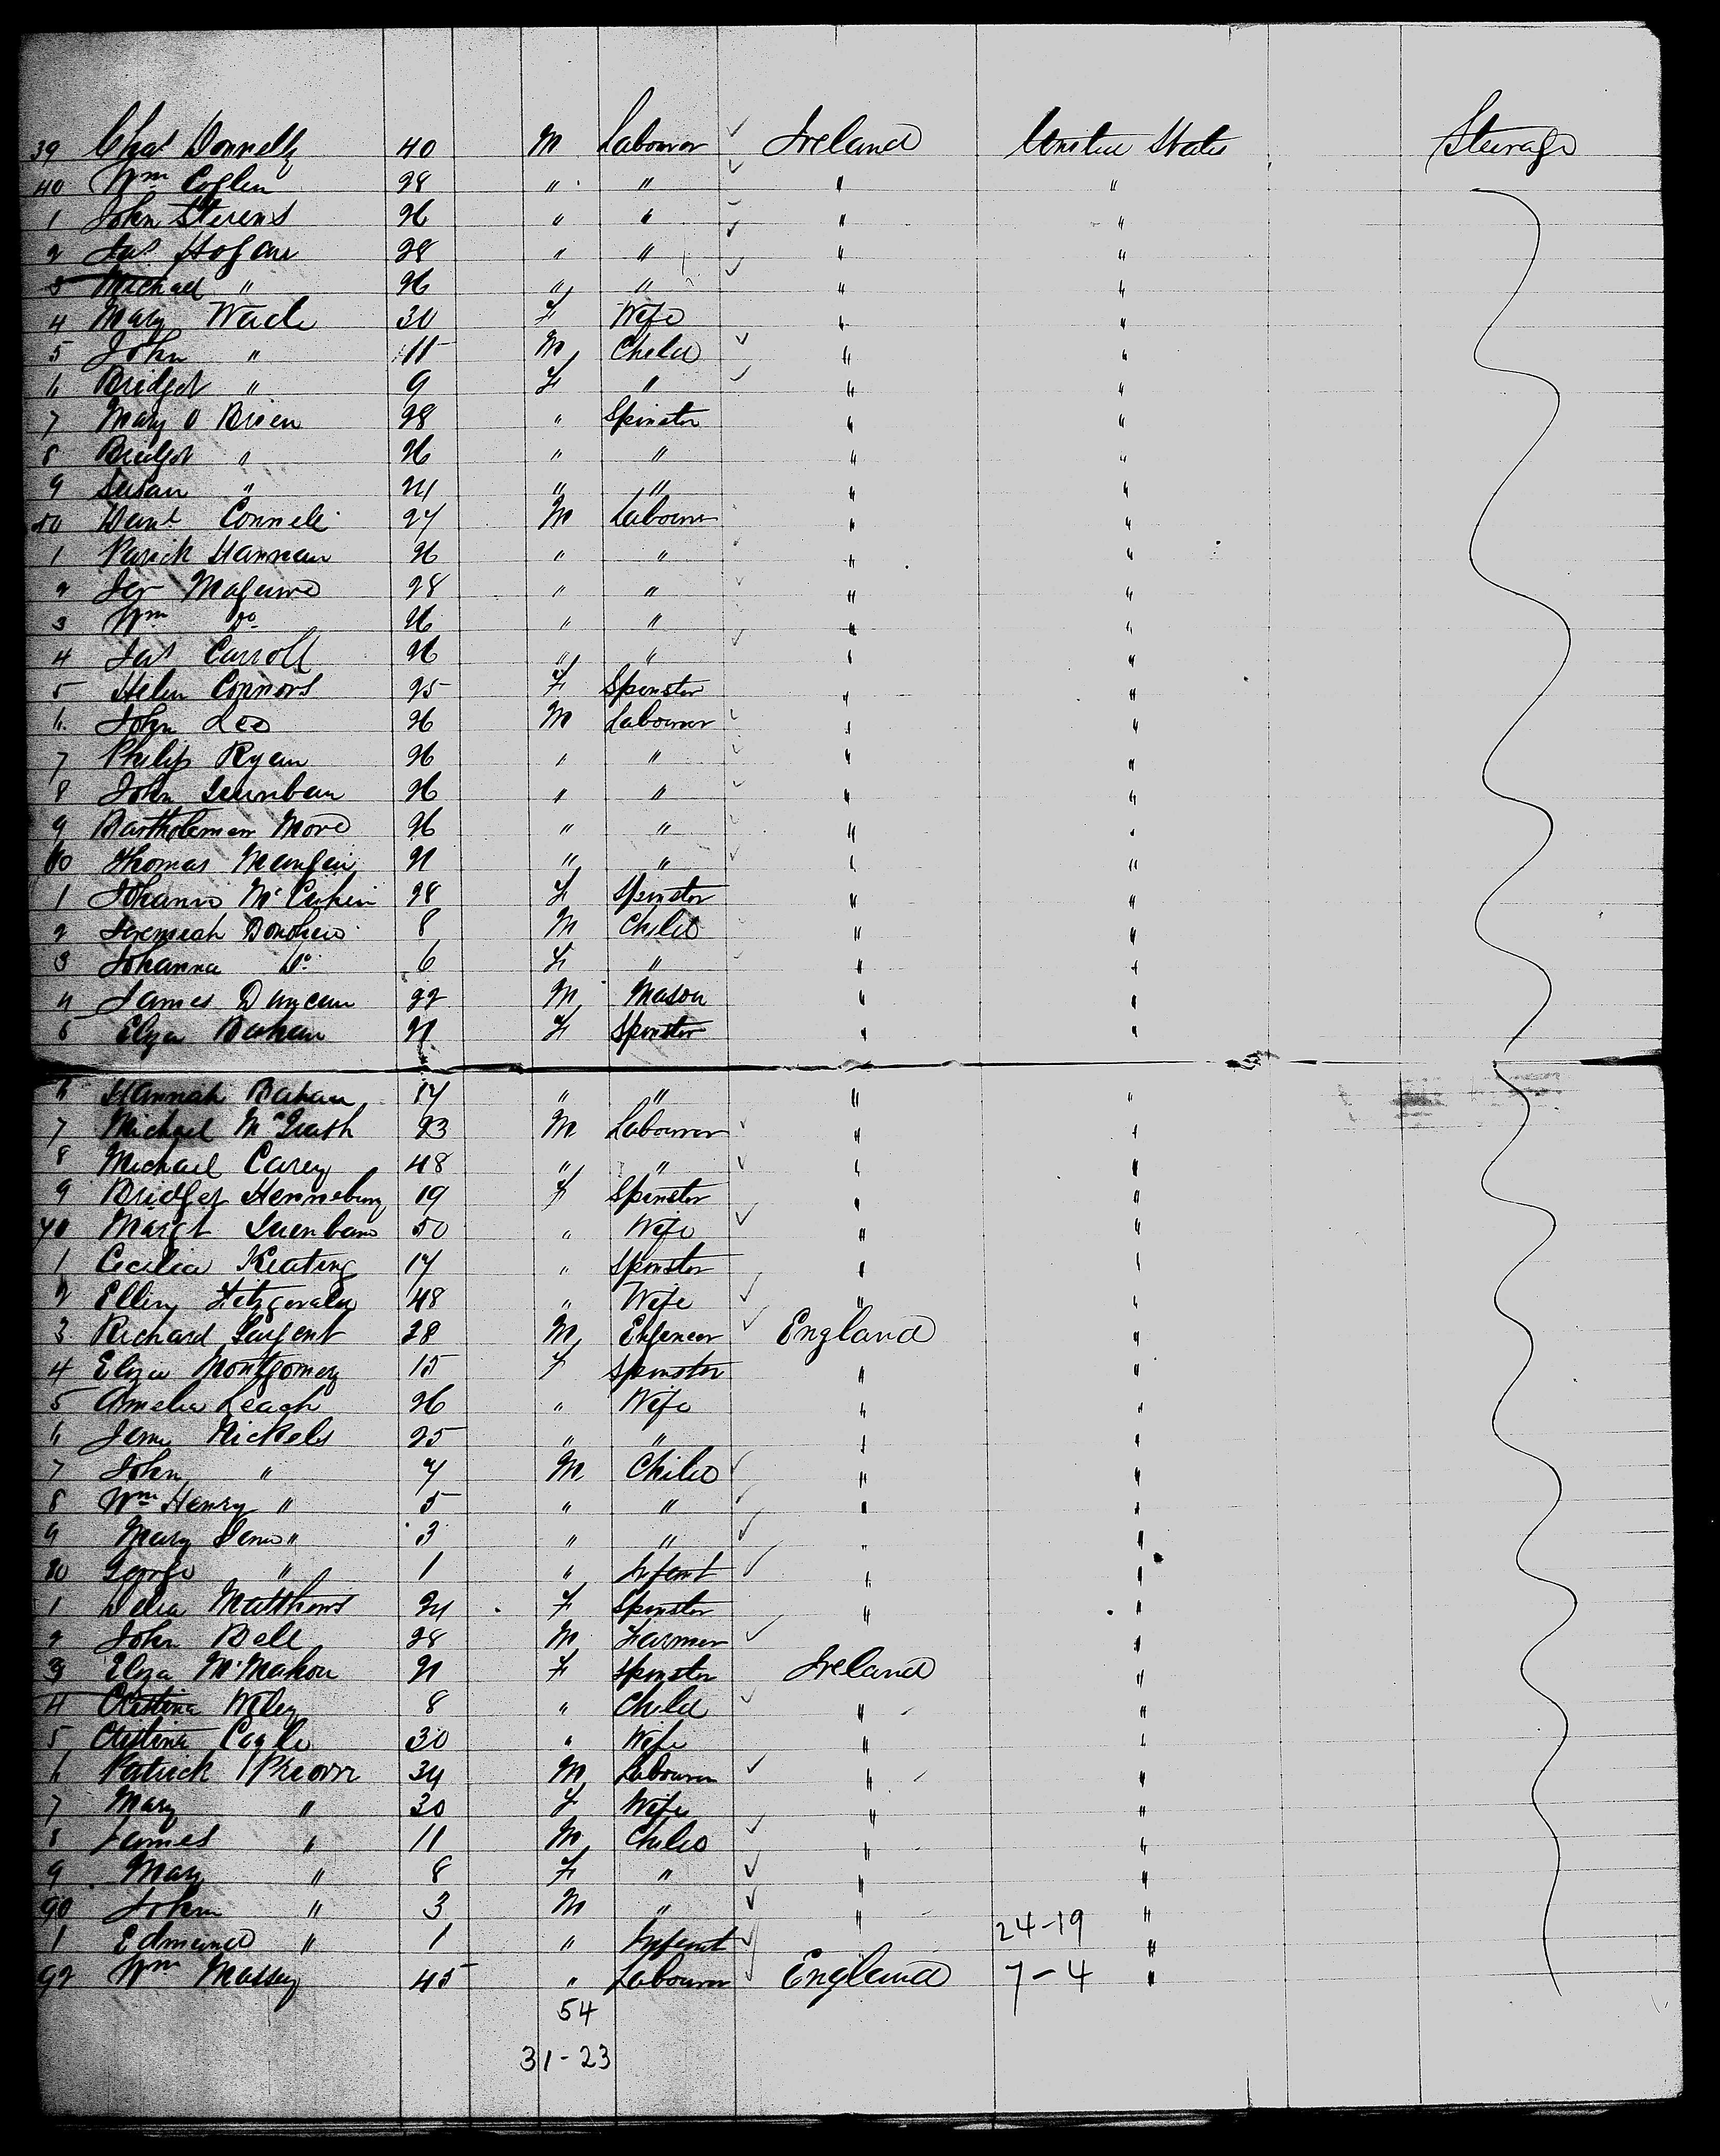 39 Chas Donnelly 40 M Labourer Ireland United States Steerage
40 Wm Coglen 28 " " " "
1 John Stevens 26 " " " "
2 Jas Hogan 28 " " " "
3 Michael " 26 " " " "
4 Mary Wade 30 F Wife " "
5 John " 11 M Child " "
6 Bridget " 9 F " " "
7 Mary O Brien 28 " Spinster " "
8 Bridget " 26 " " " "
9 Susan " 24 " " " "
50 Danl Connell 27 M Labourer " "
1 Patrick Hannan 26 " " " "
2 Jer Maguire 28 " " " "
3 Wm Do 26 " " " "
4 Jas Carroll 26 " " " "
5 Helen Connors 25 F Spinster " "
6 John Lee 26 M Labourer " "
7 Philip Ryan 26 " " " "
8 John 26 " " " "
9 Bartholemew More 26 " " " "
60 Thomas Mangin 21 " " " "
1 Johanna 28 F Spinster " "
2 Jeremiah Donohue 8 M Child " "
3 Johanna Do 6 F " " "
4 James Duncan 22 M Mason " "
5 Eliza Bahan 21 F Spinster " "
6 Hannah Bahan 17 " " " "
7 Michael McGrath 23 M Labourer " "
8 Michael Carey 48 " " " "
9 Bridget Hennebury 19 F Spinster " "
70 Margt 50 " Wife " "
1 Cecilia Keating 17 " Spinster " "
2 Ellen Fitzgerald 48 " Wife " "
3 Richard Sargent 38 M Engeneer England "
4 Eliza Montgomery 15 F Spinster " "
5 Amelia Leach 26 " Wife " "
6 Jane Nickels 25 " " " "
7 John " 7 M Child " "
8 Wm Henry " 5 " " " "
9 Mary Jane " 3 " " " "
80 George " 1 " Infant " "
1 Delia Matthews 24 F Spinster " "
2 John Bell 28 M Farmer " "
3 Eliza McMahon 21 F Spinster Ireland "
4 Cristina Wiley 8 " Child " "
5 Cristina Cagle 30 " Wife " "
6 Patrick 34 M Labourer " "
7 Mary " 30 F Wife " "
8 James " 11 M Child " "
9 Mary " 8 F " " "
90 John " 3 M " " "
1 Edmund " 1 " Infant " 24-19 "
92 Wm Massey 45 " Labourer England 7-4 "
54
31-23